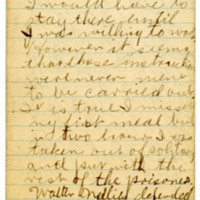 I would have to
stay there until
I was willing to work
However it seems
that those instructions
were never ment
to be carried out
It is true I missed
my first meal but
in two hours I was
taken out of solitary
and put with the
rest of the prisoners
Walter Nellies defended